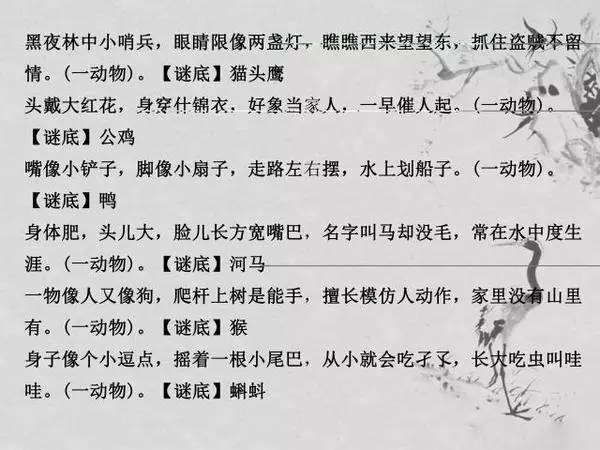 黑夜林中小哨兵，眼睛限像两盏灯，瞧瞧西来望望东，抓住盗贼不留
情。(一动物)。【谜底】猫头鹰
头戴大红花，身穿什锦衣，好象当家人，一早催人起。(一动物)。
【谜底】公鸡
嘴像小铲子，脚像小扇子，走路左右摆，水上划船子。(一动物)。
【谜底】鸭
身体肥，头儿大，脸儿长方宽嘴巴，名字叫马却没毛，常在水中度生
涯。(一动物)。【谜底】河马
一物像人又像狗，爬杆上树是能手，擅长模仿人动作，家里没有山里
有。(一动物)。【谜底】猴
身子像个小逗点，摇着一根小尾巴，从小就会吃孑孓，长大吃虫叫哇
哇。(一动物)。【谜底】蝌蚪